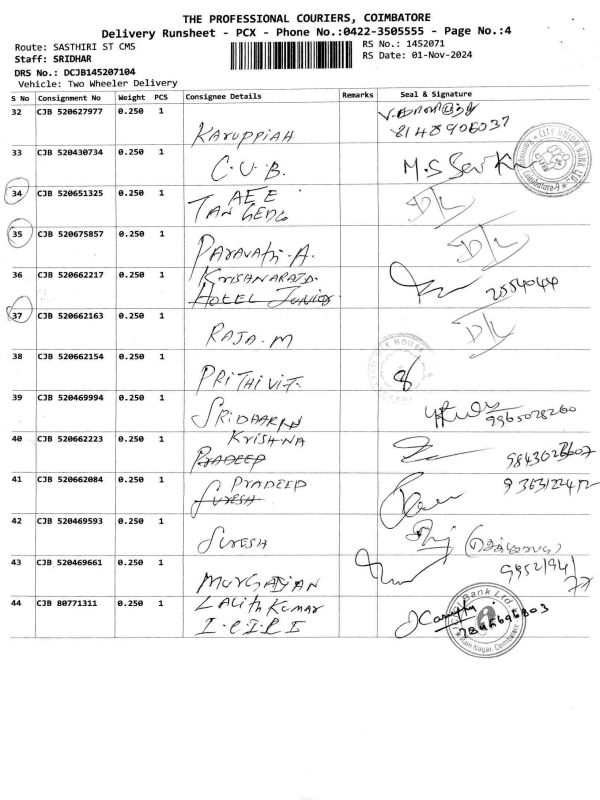 THE PROFESSIONAL COURIERS, COIMBATORE
Delivery Runsheet - PCX - Phone No.:0422-3505555 - Page No.:4
Route: SASTHIRI ST CMS
RS No.: 1452071
Staff: SRIDHAR
RS Date: 01-Nov-2024
DRS No.: DCJB145207104
Vehicle: Two Wheeler Delivery
S No Consignment No Weight PCS Consignee Details Remarks Seal & Signature
32 CJB 520627977 0.250 1
KARUPPIAH
8148906037
33 CJB 520430734 0.250 1
C.U.B.
CITY UNION BANK LTD.
Coimbatore-9
34 CJB 520651325 0.250 1
AEE
TANGEDCO
D/L
35 CJB 520675857 0.250 1
PARAVATHI-A.
D/L
36 CJB 520662217 0.250 1
KRISHNARAJ.D.
HOTEL JUNIOR
37 CJB 520662163 0.250 1
RAJA.M
D/L
38 CJB 520662154 0.250 1
PRITHIVI.T.
39 CJB 520469994 0.250 1
SRIDHARAN
9965028260
40 CJB 520662223 0.250 1
KRISHNA
PRADEEP
41 CJB 520662084 0.250 1
PRADEEP
SURESH
42 CJB 520469593 0.250 1
SURESH
43 CJB 520469661 0.250 1
MURGAIYAN
44 CJB 80771311 0.250 1
LALITH KUMAR
I.C.I.C.I
Bank Ltd.
Ram Nagar, Coimbatore